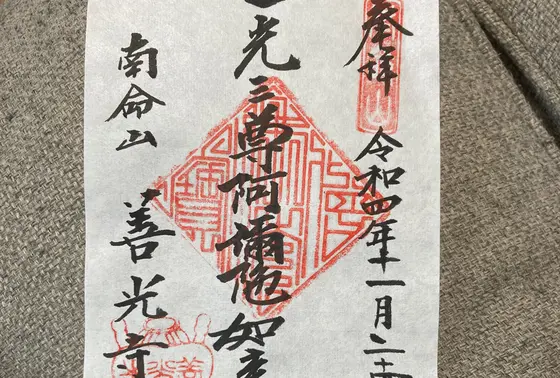 奉拝
令和四年十一月二十
一光三尊阿彌陀如来
南命山
善光寺